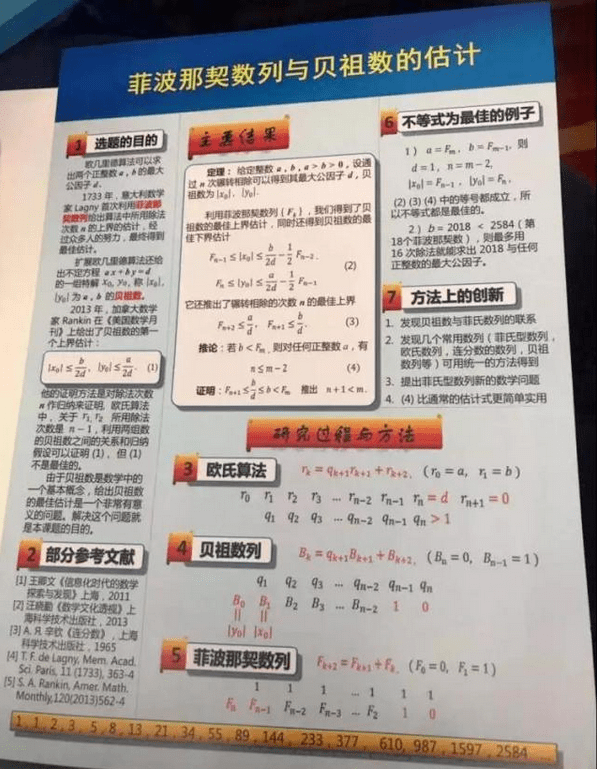 菲波那契数列与贝祖数的估计
1 选题的目的
欧几里德算法可以求
出两个正整数 a, b 的最大
公因子 d.
1733 年，意大利数学
家 Lagny 首次利用菲波那
契数列给出算法中所用除法
次数 n 的上界的估计，经
过众多人的努力，最终得到
最佳估计。
扩展欧几里德算法还给
出不定方程 ax + by = d
的一组特解 x₀, y₀, 称 |x₀|,
|y₀| 为 a, b 的贝祖数。
2013 年，加拿大数学
家 Rankin 在《美国数学月
刊》上给出了贝祖数的第一
个上界估计：
|x₀| ≤ b/2d, |y₀| ≤ a/2d. (1)
他的证明方法是对除法次数
n 作归纳来证明, 欧氏算法
中，关于 r₁, r₂ 所用除法
次数是 n − 1，利用两组数
的贝祖数之间的关系和归纳
假设可以证明 (1)、但 (1)
不是最佳的。
由于贝祖数是数学中的
一个基本概念，给出贝祖数
的最佳估计是一个非常有意
义的问题。解决这个问题就
是本课题的目的。
2 部分参考文献
[1] 王卿文《信息化时代的数学
探索与发现》上海，2011
[2] 汪晓勤《数学文化透视》上
海科学技术出版社，2013
[3] А. Я. 辛钦《连分数》，上海
科学技术出版社，1965
[4] T. F. de Lagny, Mem. Acad.
Sci. Paris, 11 (1733), 363-4
[5] S. A. Rankin, Amer. Math.
Monthly,120(2013)562-4
主要结果
定理：给定整数 a, b, a > b > 0, 设通
过 n 次辗转相除可以得到其最大公因子 d, 贝
祖数为 |x₀|, |y₀|.
利用菲波那契数列 {Fₖ}，我们得到了贝
祖数的最佳上界估计，同时还得到贝祖数的最
佳下界估计
Fₙ₋₁ ≤ |x₀| ≤ b/2d − 1/2 Fₙ₋₂.
(2)
Fₙ ≤ |y₀| ≤ a/2d − 1/2 Fₙ₋₁
它还推出了辗转相除的次数 n 的最佳上界
Fₙ₊₂ ≤ a/d, Fₙ₊₁ ≤ b/d. (3)
推论：若 b < Fₘ, 则对任何正整数 a，有
n ≤ m − 2 (4)
证明：Fₙ₊₁ ≤ b/d ≤ b < Fₘ 推出 n + 1 < m.
6 不等式为最佳的例子
1） a = Fₘ, b = Fₘ₋₁, 则
d = 1, n = m − 2,
|x₀| = Fₙ₋₁, |y₀| = Fₙ,
(2) (3) (4) 中的等号都成立，所
以不等式都是最佳的。
2）b = 2018 < 2584（第
18个菲波那契数），则最多用
16 次除法就能求出 2018 与任何
正整数的最大公因子。
7 方法上的创新
1. 发现贝祖数与菲氏数列的联系
2. 发现几个常用数列（菲氏型数列，
欧氏数列，连分数的数列，贝祖
数列等）可用统一的方法得到
3. 提出菲氏型数列新的数学问题
4. (4) 比通常的估计式更简单实用
研究过程与方法
3 欧氏算法 rₖ = qₖ₊₁rₖ₊₁ + rₖ₊₂, (r₀ = a, r₁ = b)
r₀ r₁ r₂ r₃ ... rₙ₋₂ rₙ₋₁ rₙ = d rₙ₊₁ = 0
q₁ q₂ q₃ ... qₙ₋₂ qₙ₋₁ qₙ > 1
4 贝祖数列 Bₖ = qₖ₊₁Bₖ₊₁ + Bₖ₊₂, (Bₙ = 0, Bₙ₋₁ = 1)
q₁ q₂ q₃ ... qₙ₋₂ qₙ₋₁ qₙ
B₀ B₁ B₂ B₃ ... Bₙ₋₂ 1 0
|| ||
|y₀| |x₀|
5 菲波那契数列 Fₖ₊₂ = Fₖ₊₁ + Fₖ, (F₀ = 0, F₁ = 1)
1 1 1 ... 1 1 1
Fₙ Fₙ₋₁ Fₙ₋₂ Fₙ₋₃ ... F₂ 1 0
1, 1, 2, 3, 5, 8, 13, 21, 34, 55, 89, 144, 233, 377, 610, 987, 1597, 2584 ...